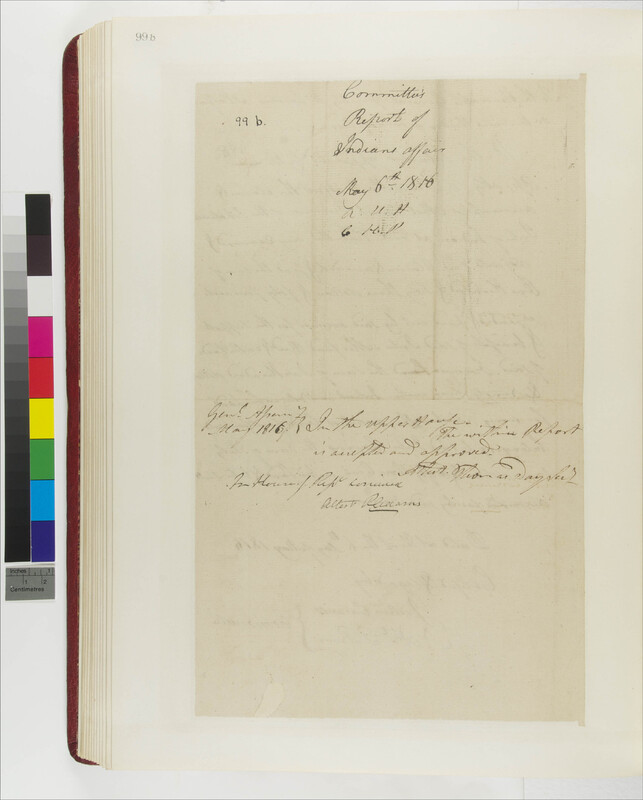 99 b
99 b.
Committes
Report of
Indians affair
May 6th 1816
a U H
6 H R
Genl. Assembly
May 1816. } In the upper House
The within Report
is accepted and approved.
Attest. Thomas Day Sect
In House of Reps. concurred
Attest
inches
1 2
Centimetres